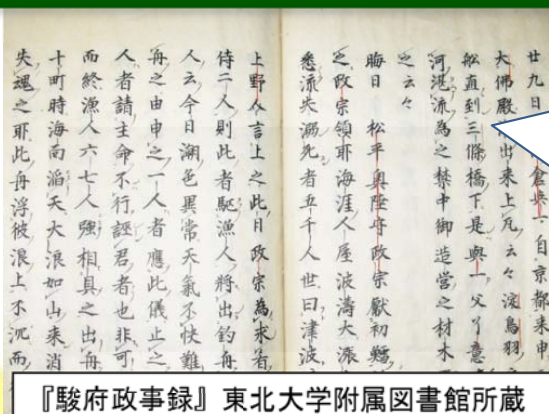 廿九日 倉與一自京都来申
大佛殿 出来上瓦云々淀鳥羽
船直到三條橋下是與一父了意
河港流為之禁中御造営之材木
之云々
晦日 松平奥陸守政宗獻初鱈
之政宗領耶海涯人屋波濤大漲
悉流失溺死者五千人世曰津波
上野介言上之此日政宗為求肴
侍二人則此者駈漁人將出釣舟
人云今日潮色異常天氣不快難
舟之由申之一人者應此儀止之
人者請主命不行誣君者也非可
而終漁人六七人強相具之出舟
十町時海面滔天大浪如山来消
失魂之耶此舟浮彼浪上不沉而
『駿府政事録』東北大学附属図書館所蔵